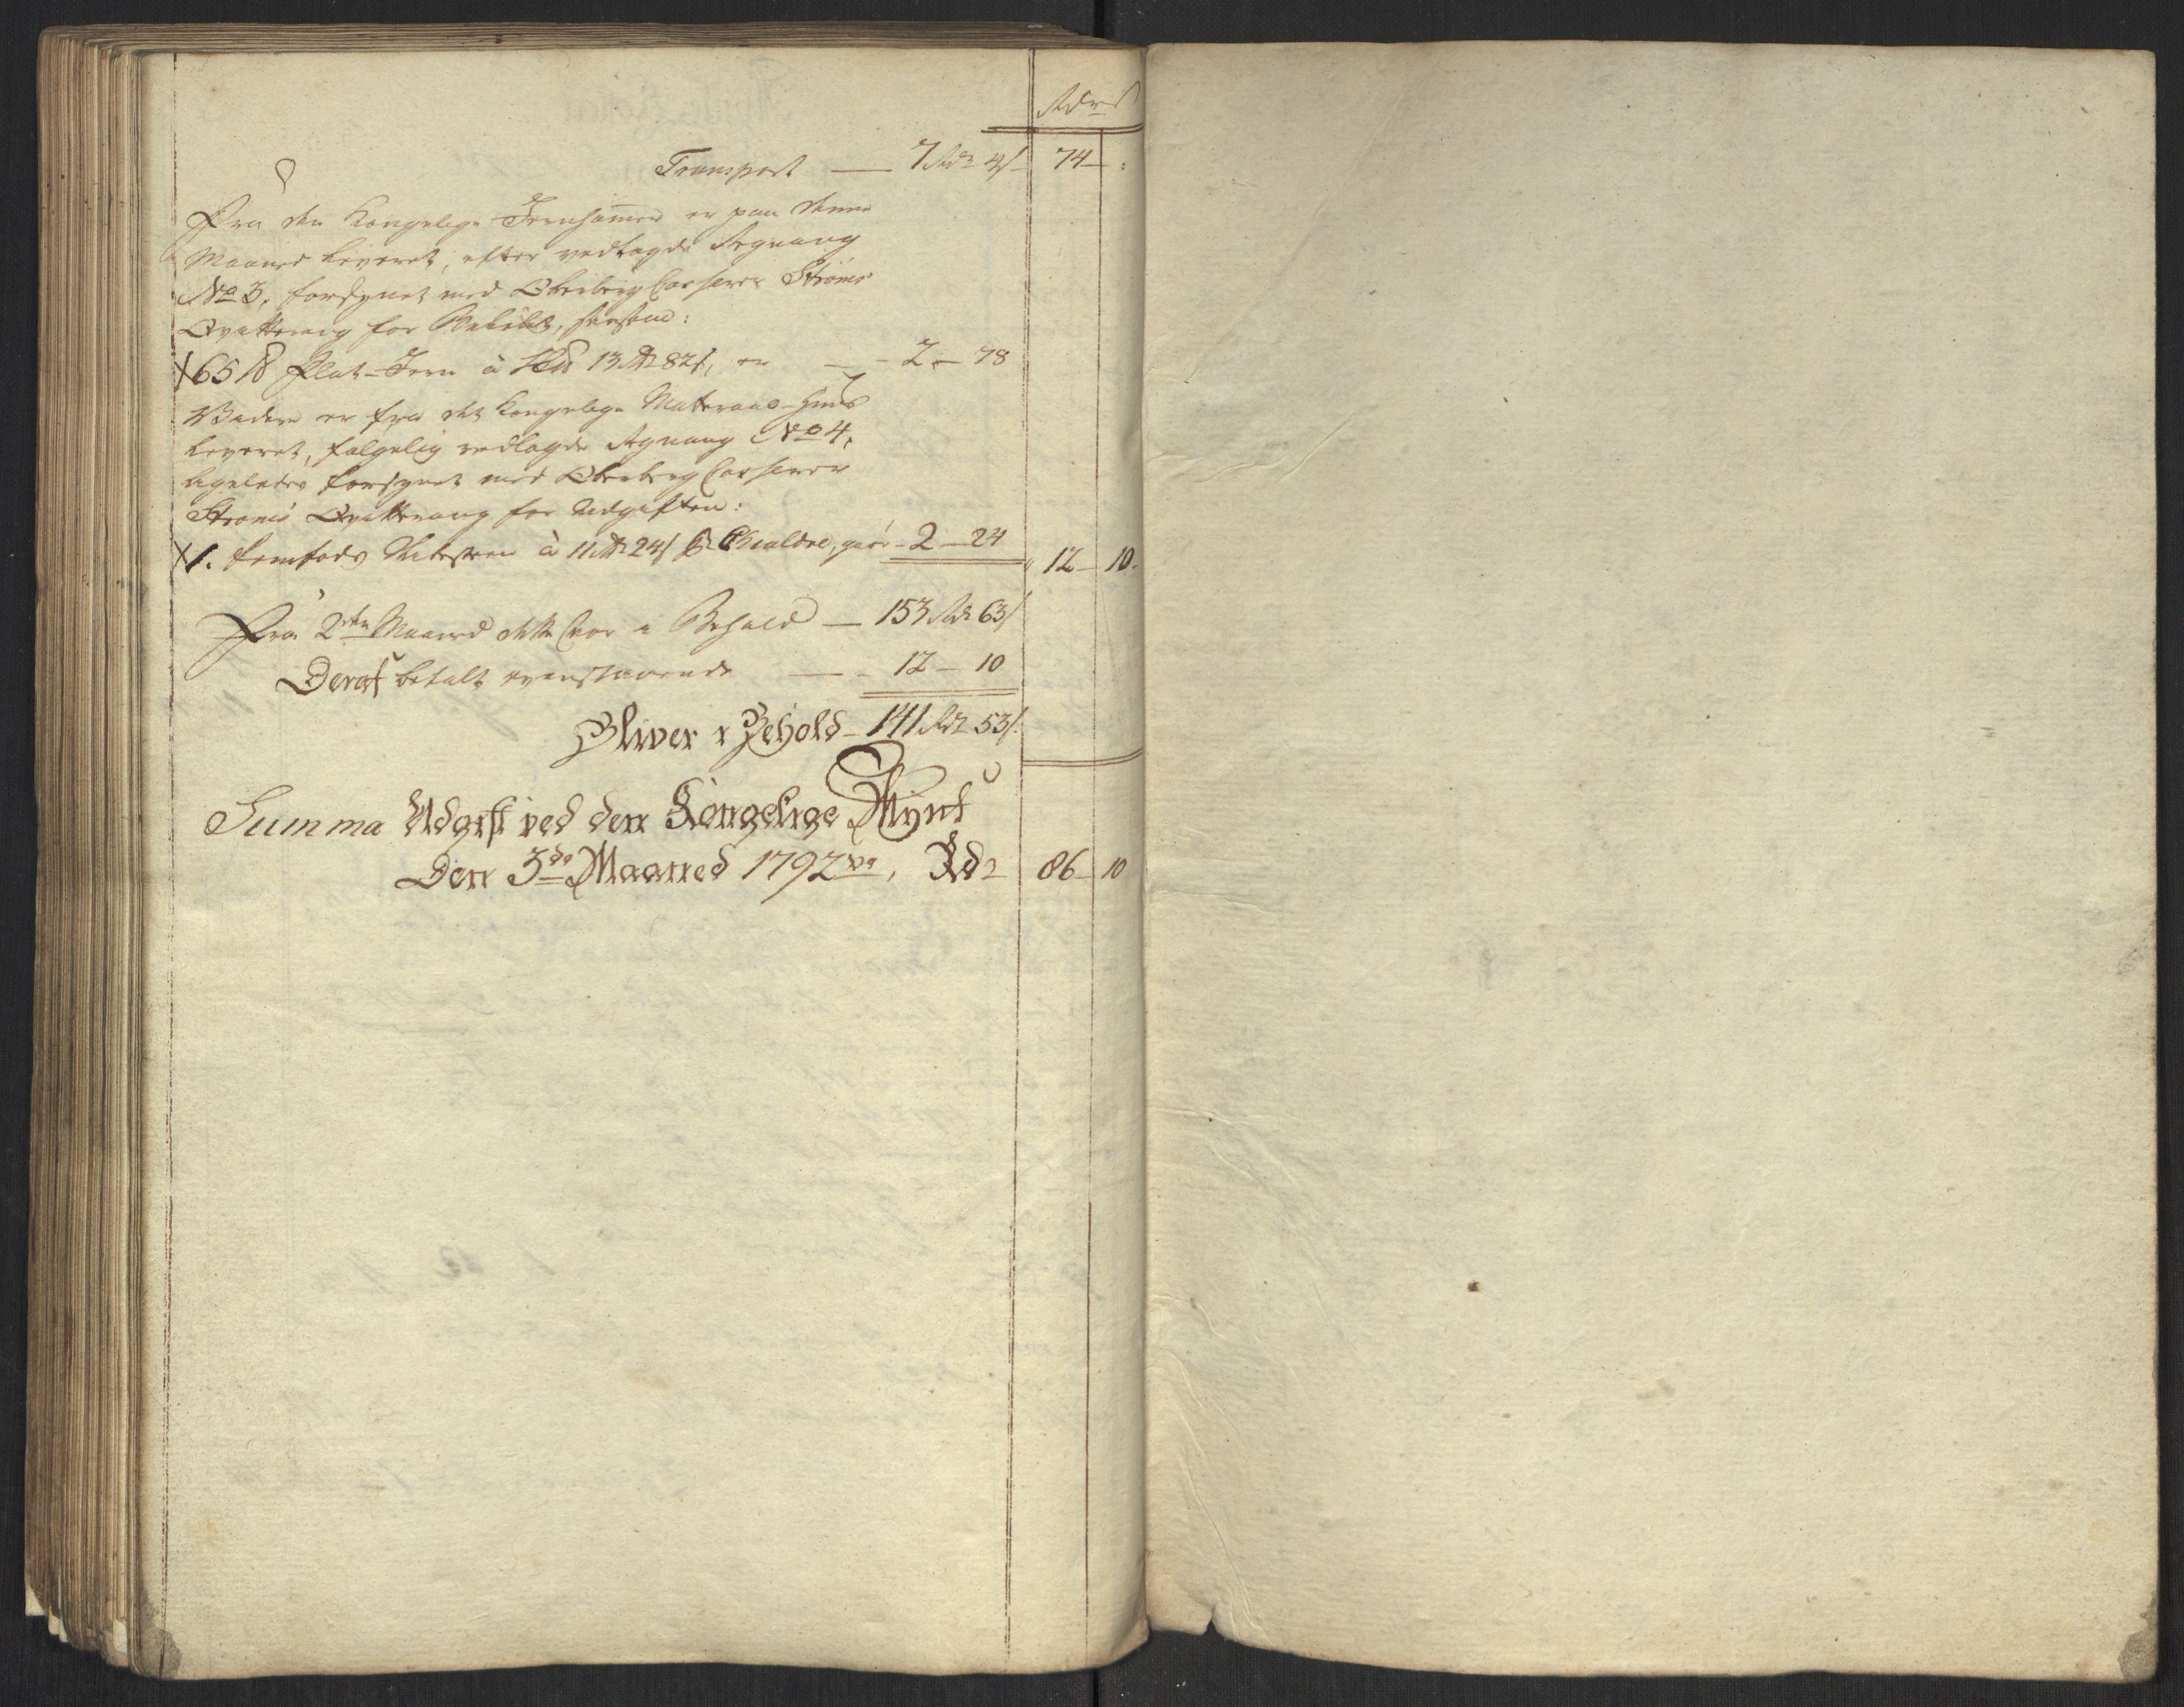 Rdr s
Transport — 7 Rdr 4 s 74 — :
Fra den Kongelige Jernhammer er paa denne
Maaned leveret, efter vedlagde Regning
No 3, forsynet med Oberberg Casserer Strøms
Qvittering for Beløbet, saasom:
65 ℔ Plat-Jern à S℔ 13 Rdr 82 s, er — 2 — 78
Videre er fra det Kongelige Materiale-Huus
leveret, følgelig vedlagde Regning No 4,
ligeledes forsynet med Oberberg Casserer
Strøms Qvittering for Udgiften:
1. à 11 Rdr 24 s giør — 2 — 24 12 — 10.
Fra 2den Maaned dette Aar i Behold — 153 Rdr 63 s
Deraf betalt ovenstaaende — 12 — 10
Bliver i Behold — 141 Rdr 53 s.
Summa Udgift ved den Kongelige Mynt
Den 3de Maaned 1792ve, Rdr 86 — 10